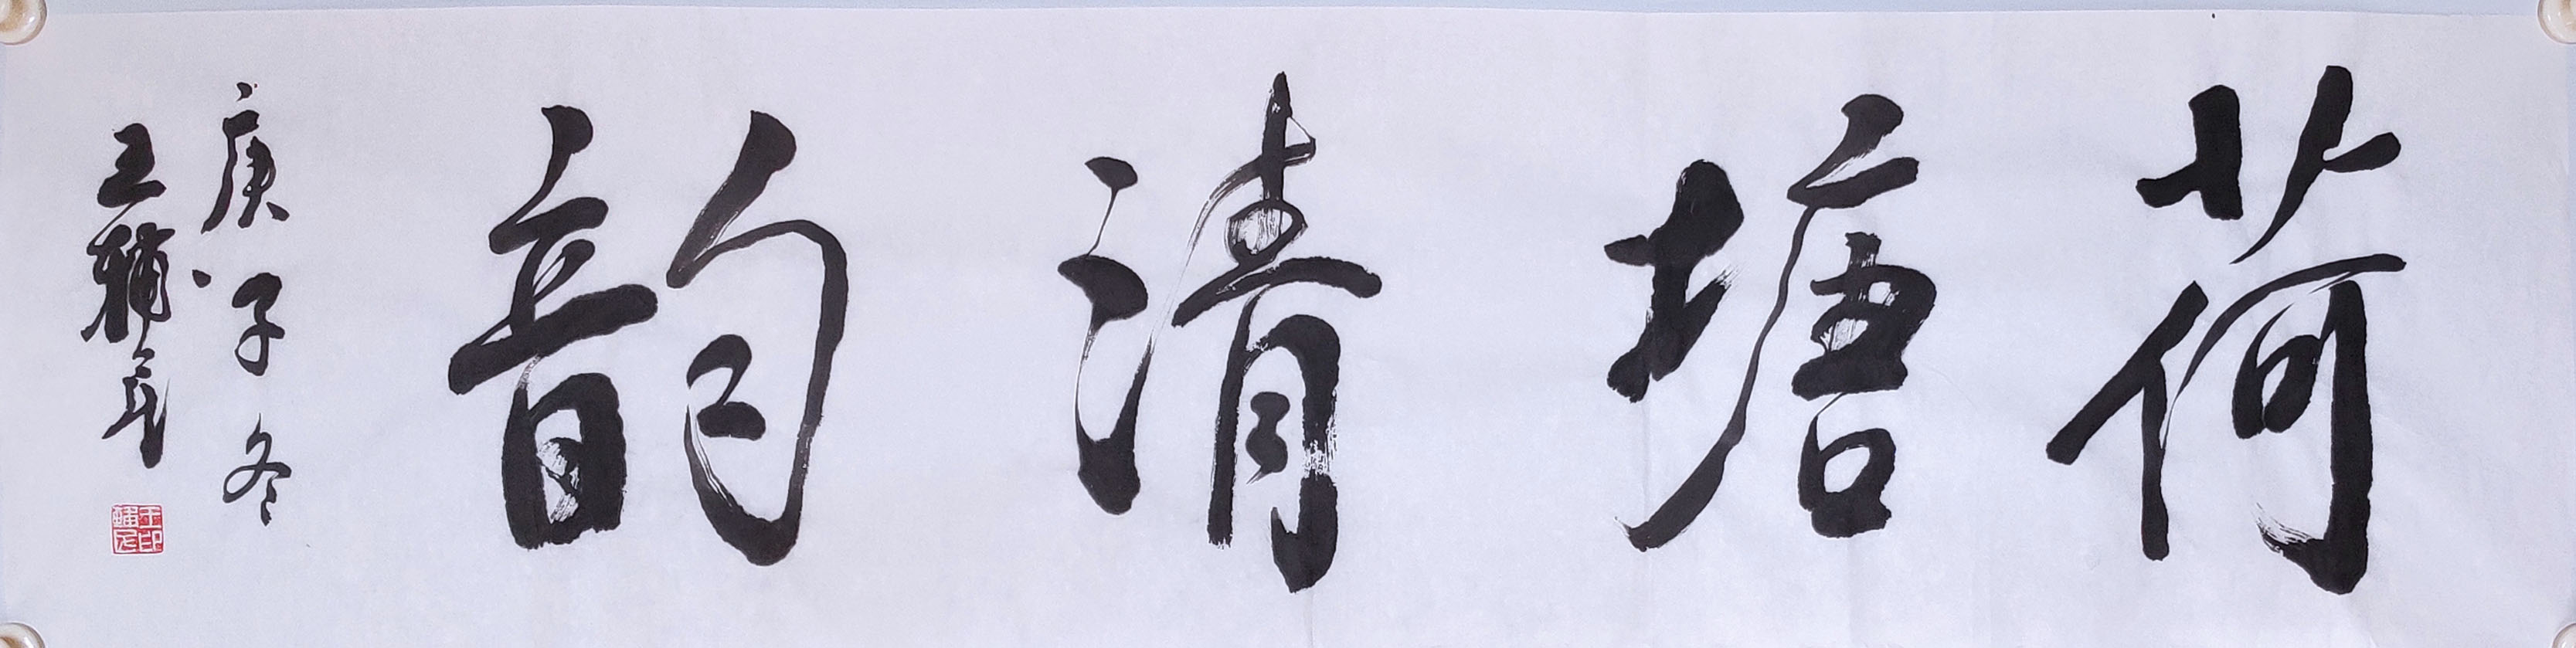 荷塘清韵
庚子冬
王輔民
王印輔民